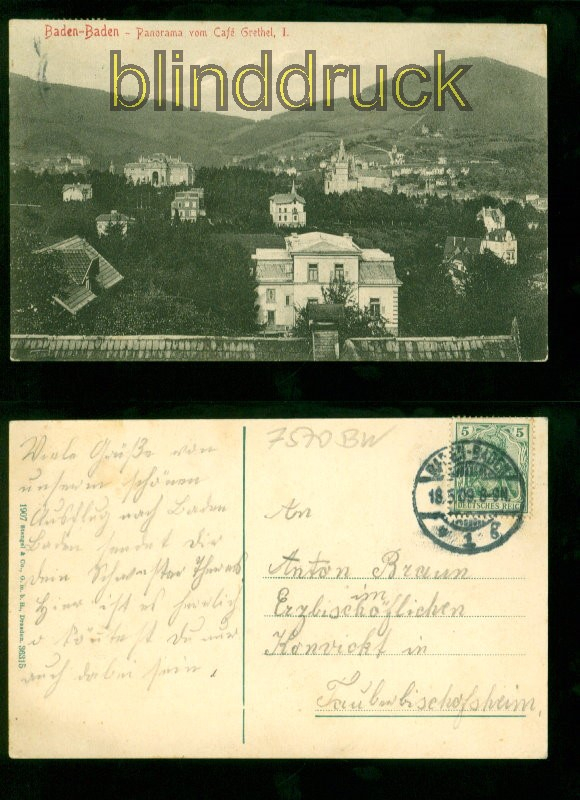 Baden-Baden - Panorama vom Café Grethel, I.
blinddruck
7570 BW
Viele Grüße von
unserm schönen
Ausflug nach Baden
Baden sendet Dir
Dein Schwester
Hier ist es herrlich
o könntest Du nur
auch dabei sein.
1907 Stengel & Co., G. m. b. H., Dresden. 36315
5 5
DEUTSCHES REICH
BADEN-BADEN
18.5.09.8-9N.
* 1 c
An
Anton Braun
im
Erzbischöflichen
Konvickt in
Tauberbischofsheim.